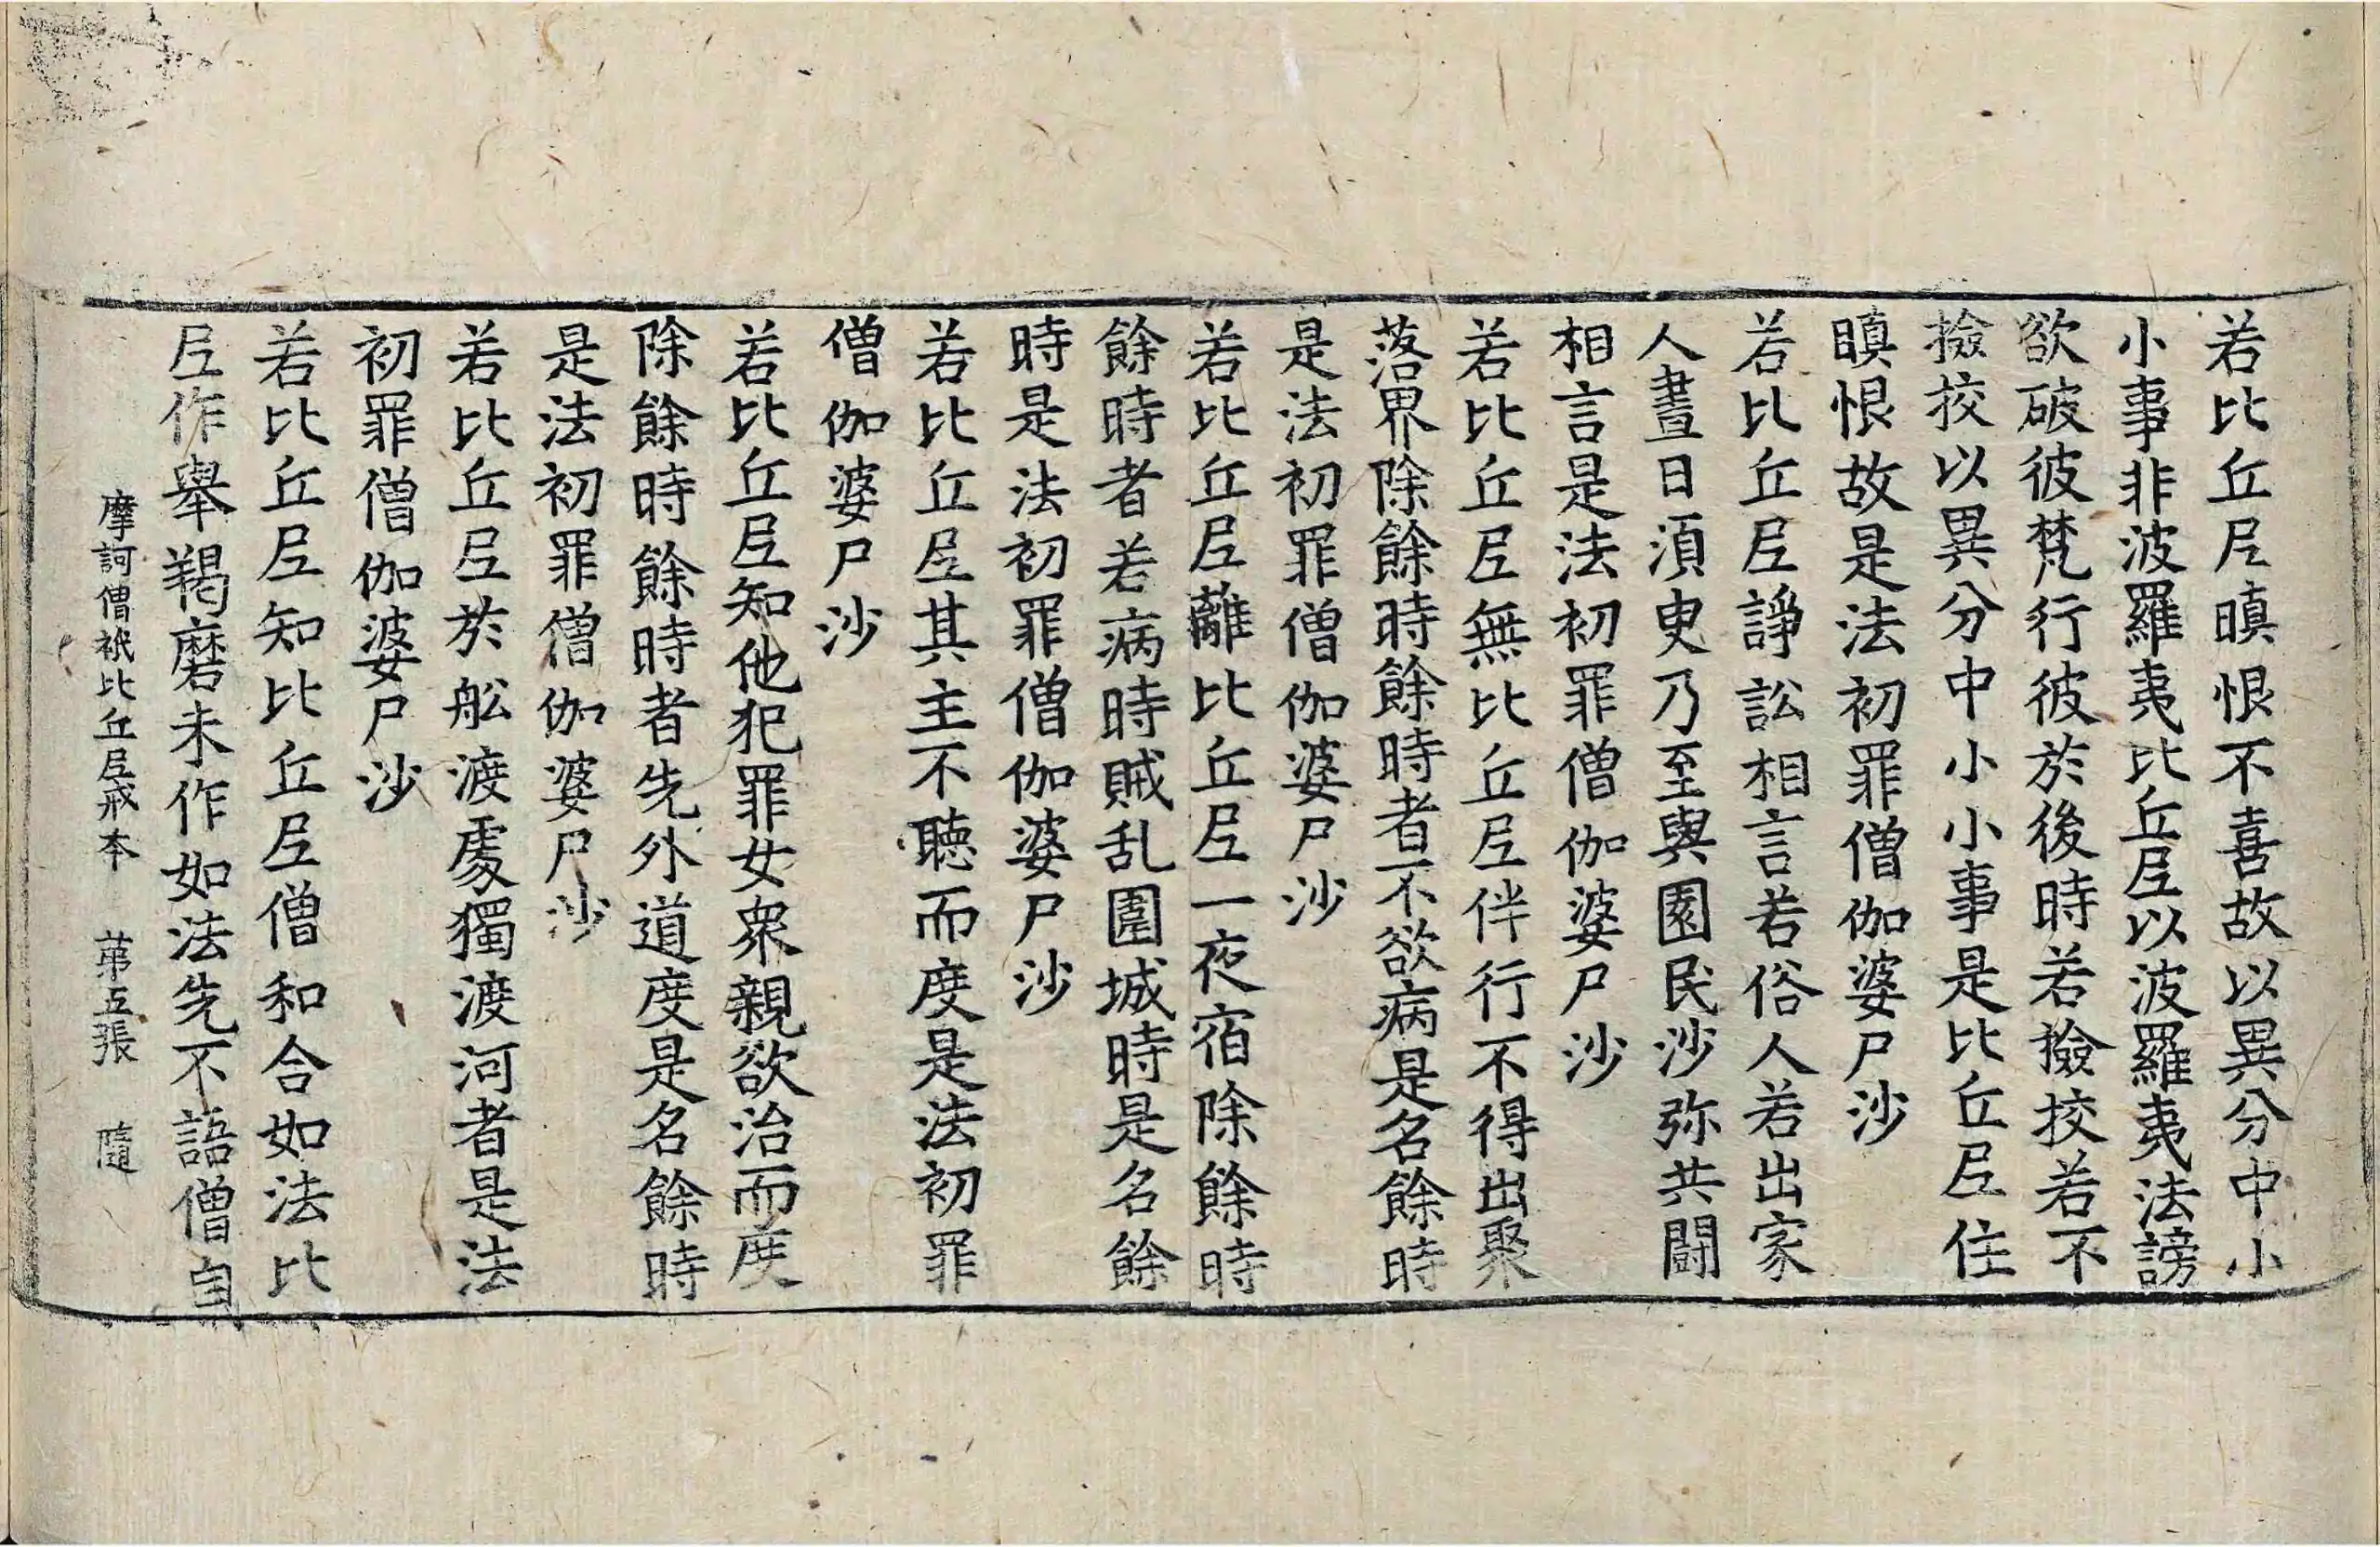 若比丘尼瞋恨不喜故以異分中小
小事非波羅夷比丘尼以波羅夷法謗
欲破彼梵行彼於後時若撿挍若不
撿挍以異分中小小事是比丘尼住
瞋恨故是法初罪僧伽婆尸沙
若比丘尼諍訟相言若俗人若出家
人晝日湏臾乃至與園民沙弥共鬪
相言是法初罪僧伽婆尸沙
若比丘尼無比丘尼伴行不得出聚
落界除餘時餘時者不欲病是名餘時
是法初罪僧伽婆尸沙
若比丘尼離比丘尼一夜宿除餘時
餘時者若病時賊乱圍城時是名餘
時是法初罪僧伽婆尸沙
若比丘尼其主不聴而度是法初罪
僧伽婆尸沙
若比丘尼知他犯罪女衆親欲治而度
除餘時餘時者先外道度是名餘時
是法初罪僧伽婆尸沙
若比丘尼於舩渡處獨渡河者是法
初罪僧伽婆尸沙
若比丘尼知比丘尼僧和合如法比
尼作舉羯磨未作如法先不語僧自
摩訶僧祇比丘尼戒本 苐五張 隨